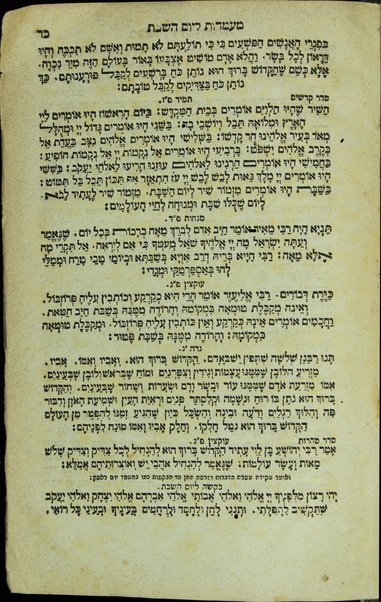 מעמדות ליום השבת
כד
בפגרי האנשים הפשעים בי כי תולעתם לא תמות ואשם לא תכבה והיו
דראון לכל בשר. והלא אדם מושיט אצבעו באור בעולם הזה מיד נכוה.
אלא כשם שהקדוש ברוך הוא נותן כח ברשעים לקבל פורענותם. כך
נותן כח בצדיקים לקבל טובתם:
סדר קדשים
תמיד פ"ז.
השיר שהיו הלוים אומרים בבית המקדש: ביום הראשון היו אומרים ליי
הארץ ומלואה תבל ויושבי בה: בשני היו אומרים גדול יי ומהולל
מאד בעיר אלהינו הר קדשו: בשלישי היו אומרים אלהים נצב בעדת אל
בקרב אלהים ישפוט: ברביעי היו אומרים אל נקמות יי אל נקמות הופיע:
בחמישי היו אומרים הרנינו לאלהים עוזנו הריעו לאלהי יעקב: בששי
היו אומרים יי מלך גאות לבש לבש יי עז התאזר אף תכון תבל בל תמוט:
בשבת היו אומרים מזמור שיר ליום השבת. מזמור שיר לעתיד לבא
ליום שכלו שבת ומנוחה לחיי העולמים:
מנחות פ"ד.
תניא היה רבי מאיר אומר חייב אדם לברך מאה ברכות בכל יום. שנאמר
ועתה ישראל מה יי אלהיך שאל מעמך כי אם ליראה. אל תקרי מה
אלא מאה: רבי חייא בריה דרב אויא בשבתא וביומי טבי טרח וממלי
להו באספרמקי ומגדי:
עוקצין פ"ג.
כוורת דבורים. רבי אליעזר אומר הרי הוא כקרקע וכותבין עליה פרוזבול.
ואינה מקבלת טומאה במקומה והרודה ממנה בשבת חייב חטאת.
וחכמים אומרים אינה כקרקע ואין כותבין עליה פרוזבול. ומקבלת טומאה
במקומה: והרודה ממנה בשבת פטור:
נדה פ"ג.
תנו רבנן שלשה שתפין יש באדם. הקדוש ברוך הוא. ואביו ואמו. אביו.
מזריע הלובן שממנו עצמות וגידין וצפרנים ומוח שבראשו ולובן שבעינים.
אמו מזרעת אדם שממנו עור ובשר ודם ושערות ושחור שבעינים. והקדוש
ברוך הוא נותן בו רוח ונשמה וקלסתר פנים וראית העין ושמיעת האוזן ודבור
פה והלוך רגלים ודעה ובינה והשכל כיון שהגיע זמנו להפטר מן העולם
הקדוש ברוך הוא נוטל חלקו. וחלק אביו ואמו מונח לפניהם:
סדר טהרות
עוקצין פ"ג.
אמר רבי יהושע בן לוי עתיד הקדוש ברוך הוא להנחיל לכל צדיק וצדיק שלש
מאות ועשר עולמות. שנאמר להנחיל אוהבי יש ואוצרותיהם אמלא:
בקשה ליום השבת.
יהי רצון מלפניך יי אלהי ואלהי אבותי אלהי אברהם אלהי יצחק ואלהי יעקב
שתקשיב לתפלתי. ותנני לחן ולחסד ולרחמים בעיניך ובעיני כל רואי.